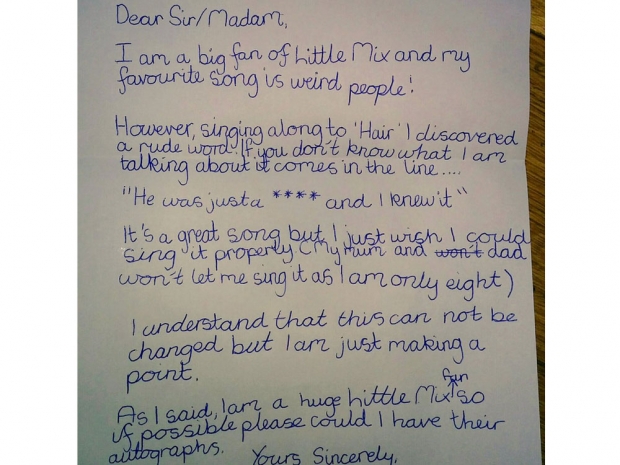 Dear Sir/Madam,
I am a big fan of Little Mix and my
favourite song is weird people!
However, singing along to 'Hair' I discovered
a rude word. If you don't know what I am
talking about it comes in the line....
"He was just a **** and I knew it"
It's a great song but I just wish I could
sing it properly (My mum and won't dad
won't let me sing it as I am only eight)
I understand that this can not be
changed but I am just making a
point.
As I said, I am a huge Little Mix fan so
if possible please could I have their
autographs. Yours Sincerely,